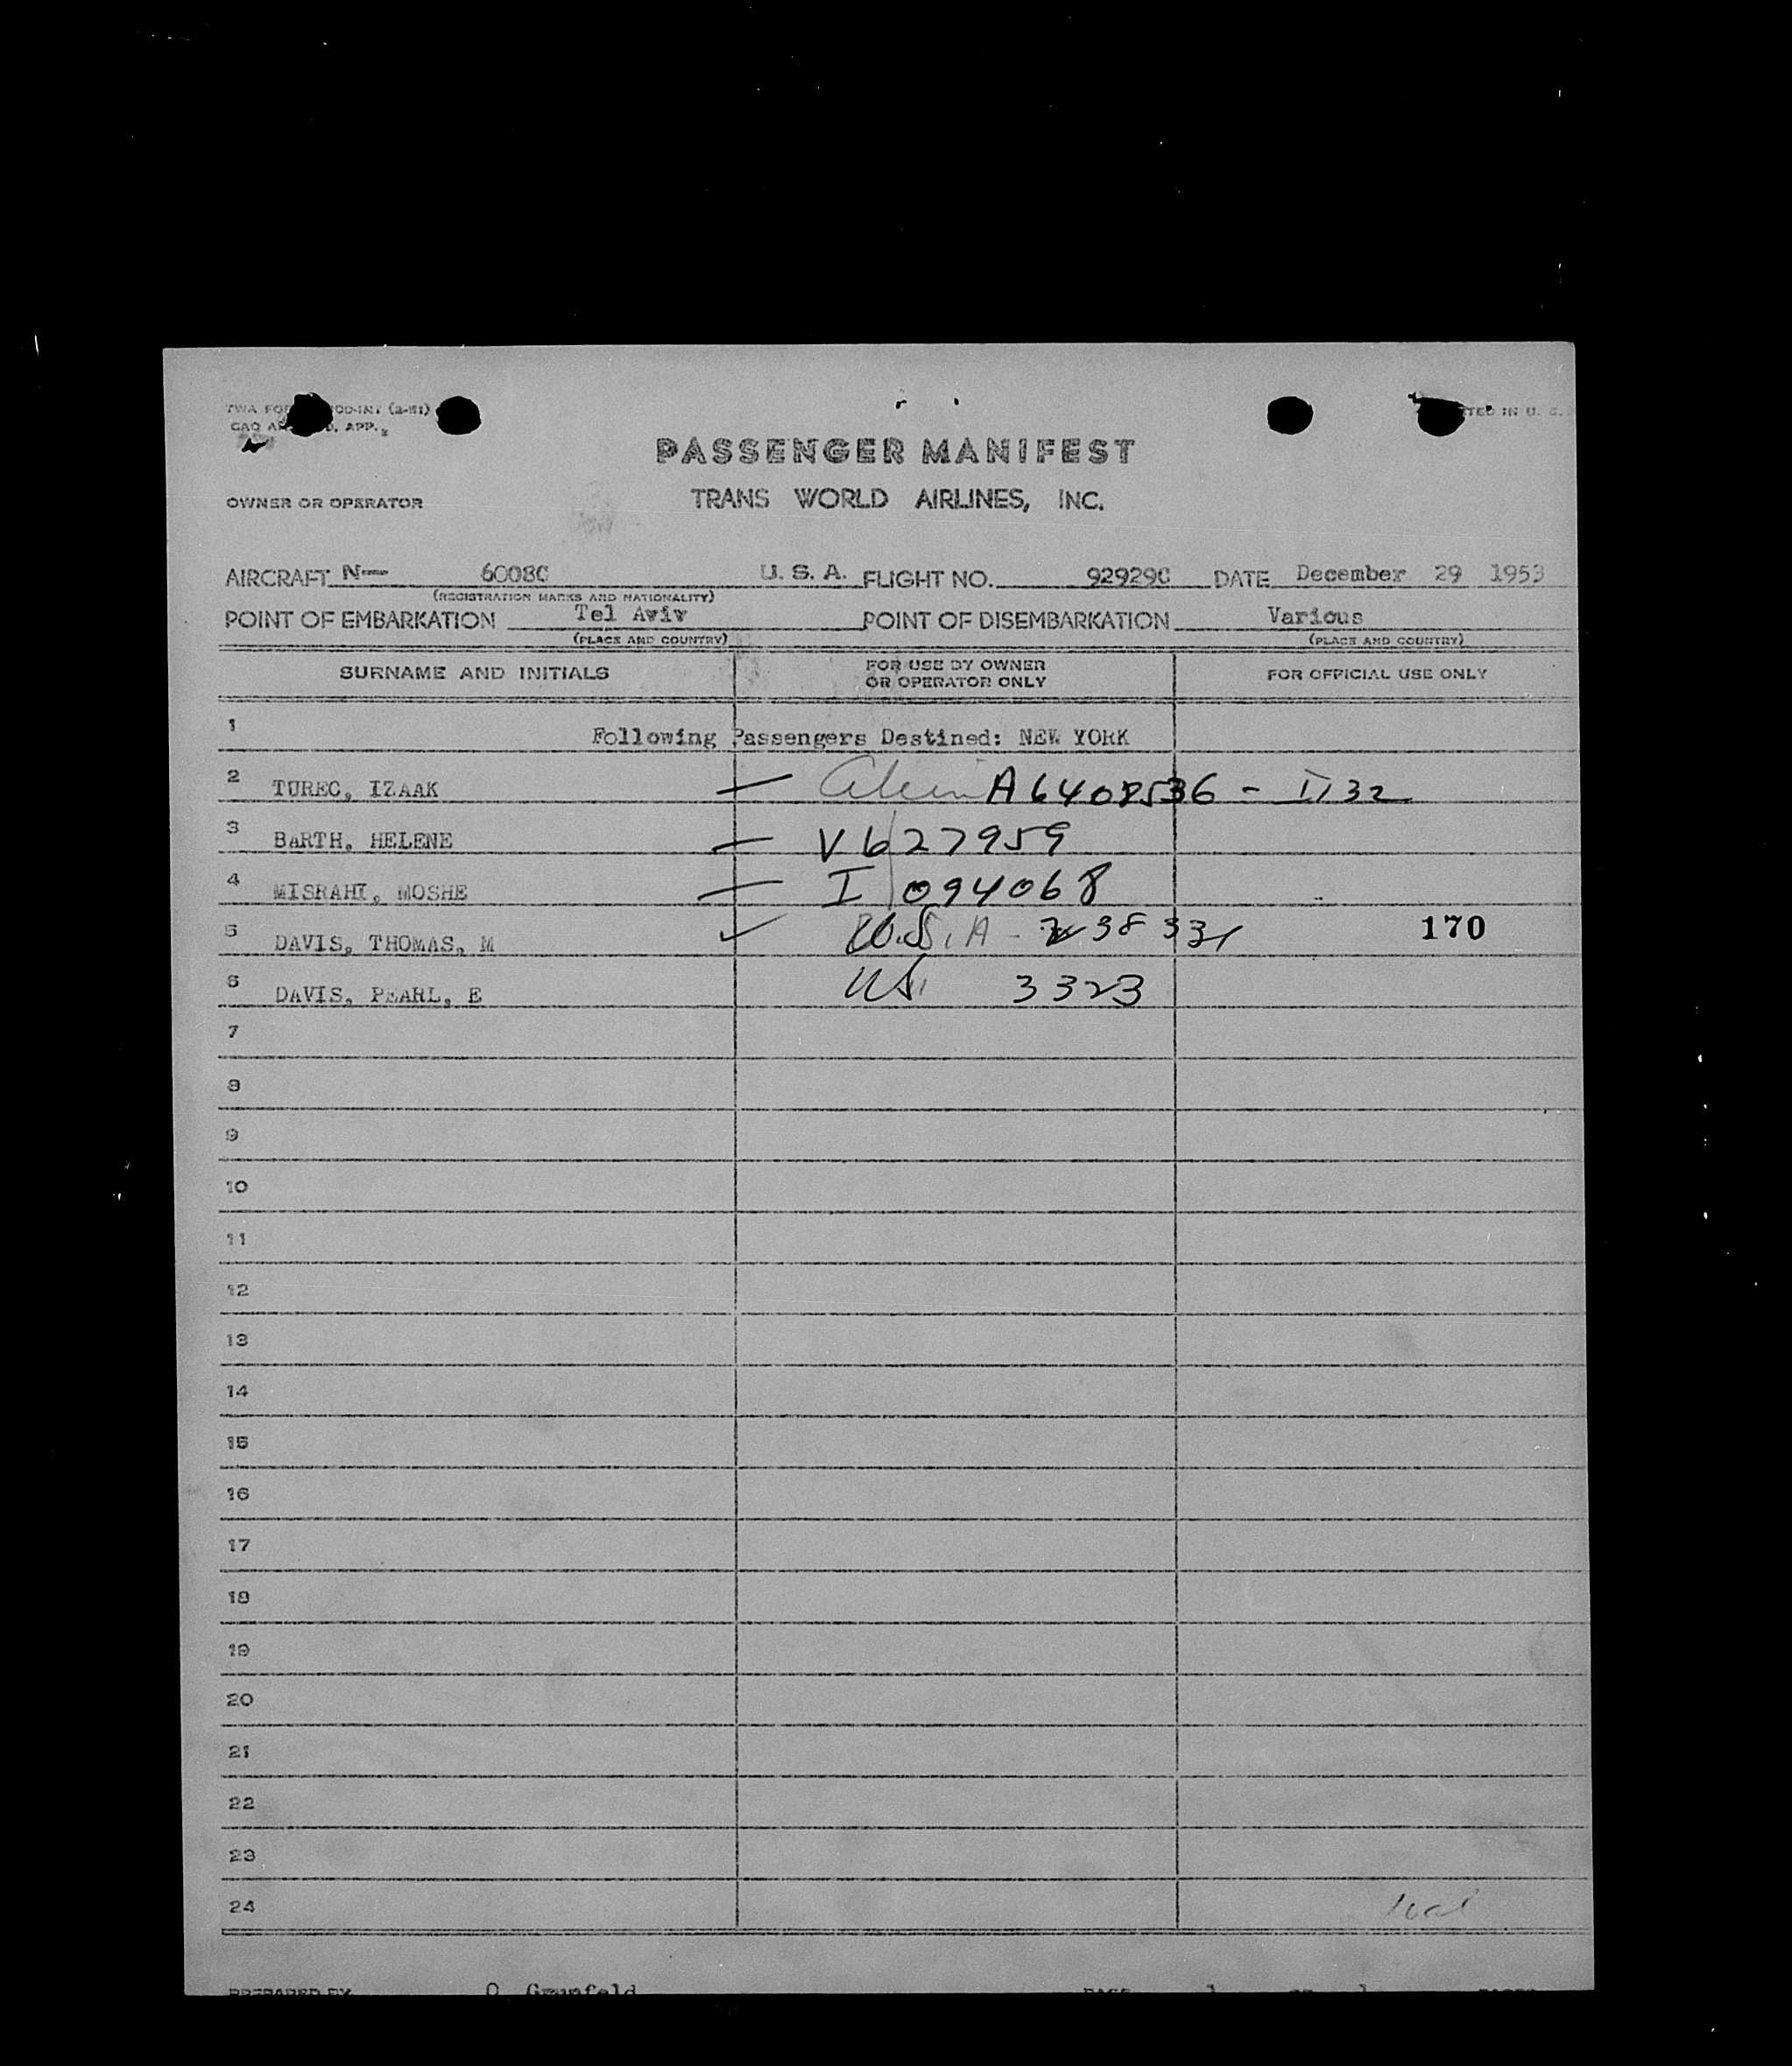 PASSENGER MANIFEST
OWNER OR OPERATOR TRANS WORLD AIRLINES, INC.
AIRCRAFT N— 6008C U. S. A. FLIGHT NO. 929290 DATE December 29 1953
(REGISTRATION MARKS AND NATIONALITY)
POINT OF EMBARKATION Tel Aviv POINT OF DISEMBARKATION Various
(PLACE AND COUNTRY) (PLACE AND COUNTRY)
SURNAME AND INITIALS FOR USE BY OWNER OR OPERATOR ONLY FOR OFFICIAL USE ONLY
1 Following Passengers Destined: NEW YORK
2 TUREC, IZAAK — Alien A6408536 -
3 BARTH, HELENE — V 627959
4 MISRAHI, MOSHE — I 094068
5 DAVIS, THOMAS, M U.S.A - 38331 170
6 DAVIS, PEARL, E US 3323
7
8
9
10
11
12
13
14
15
16
17
18
19
20
21
22
23
24
PREPARED BY O. Grunfeld PAGE 1 OF 1 PAGES